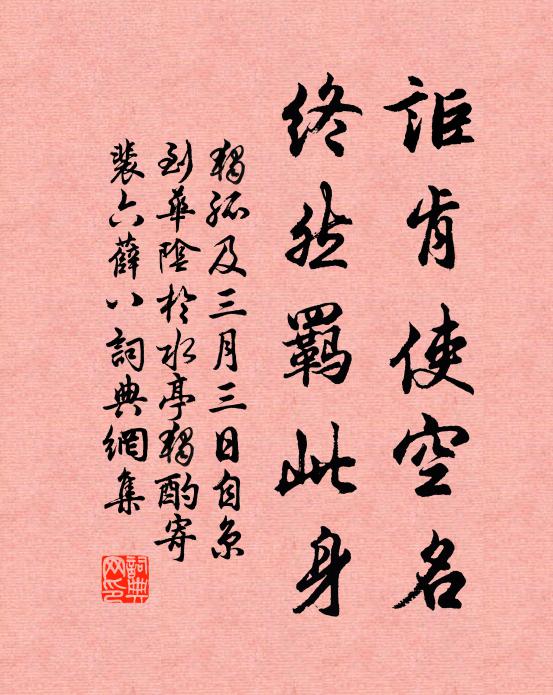 詎肯使空名
終然羈此身
獨孤及三月三日自京
到華陰於水亭獨酌寄
裴六薛八詞典網集
詞典
网印